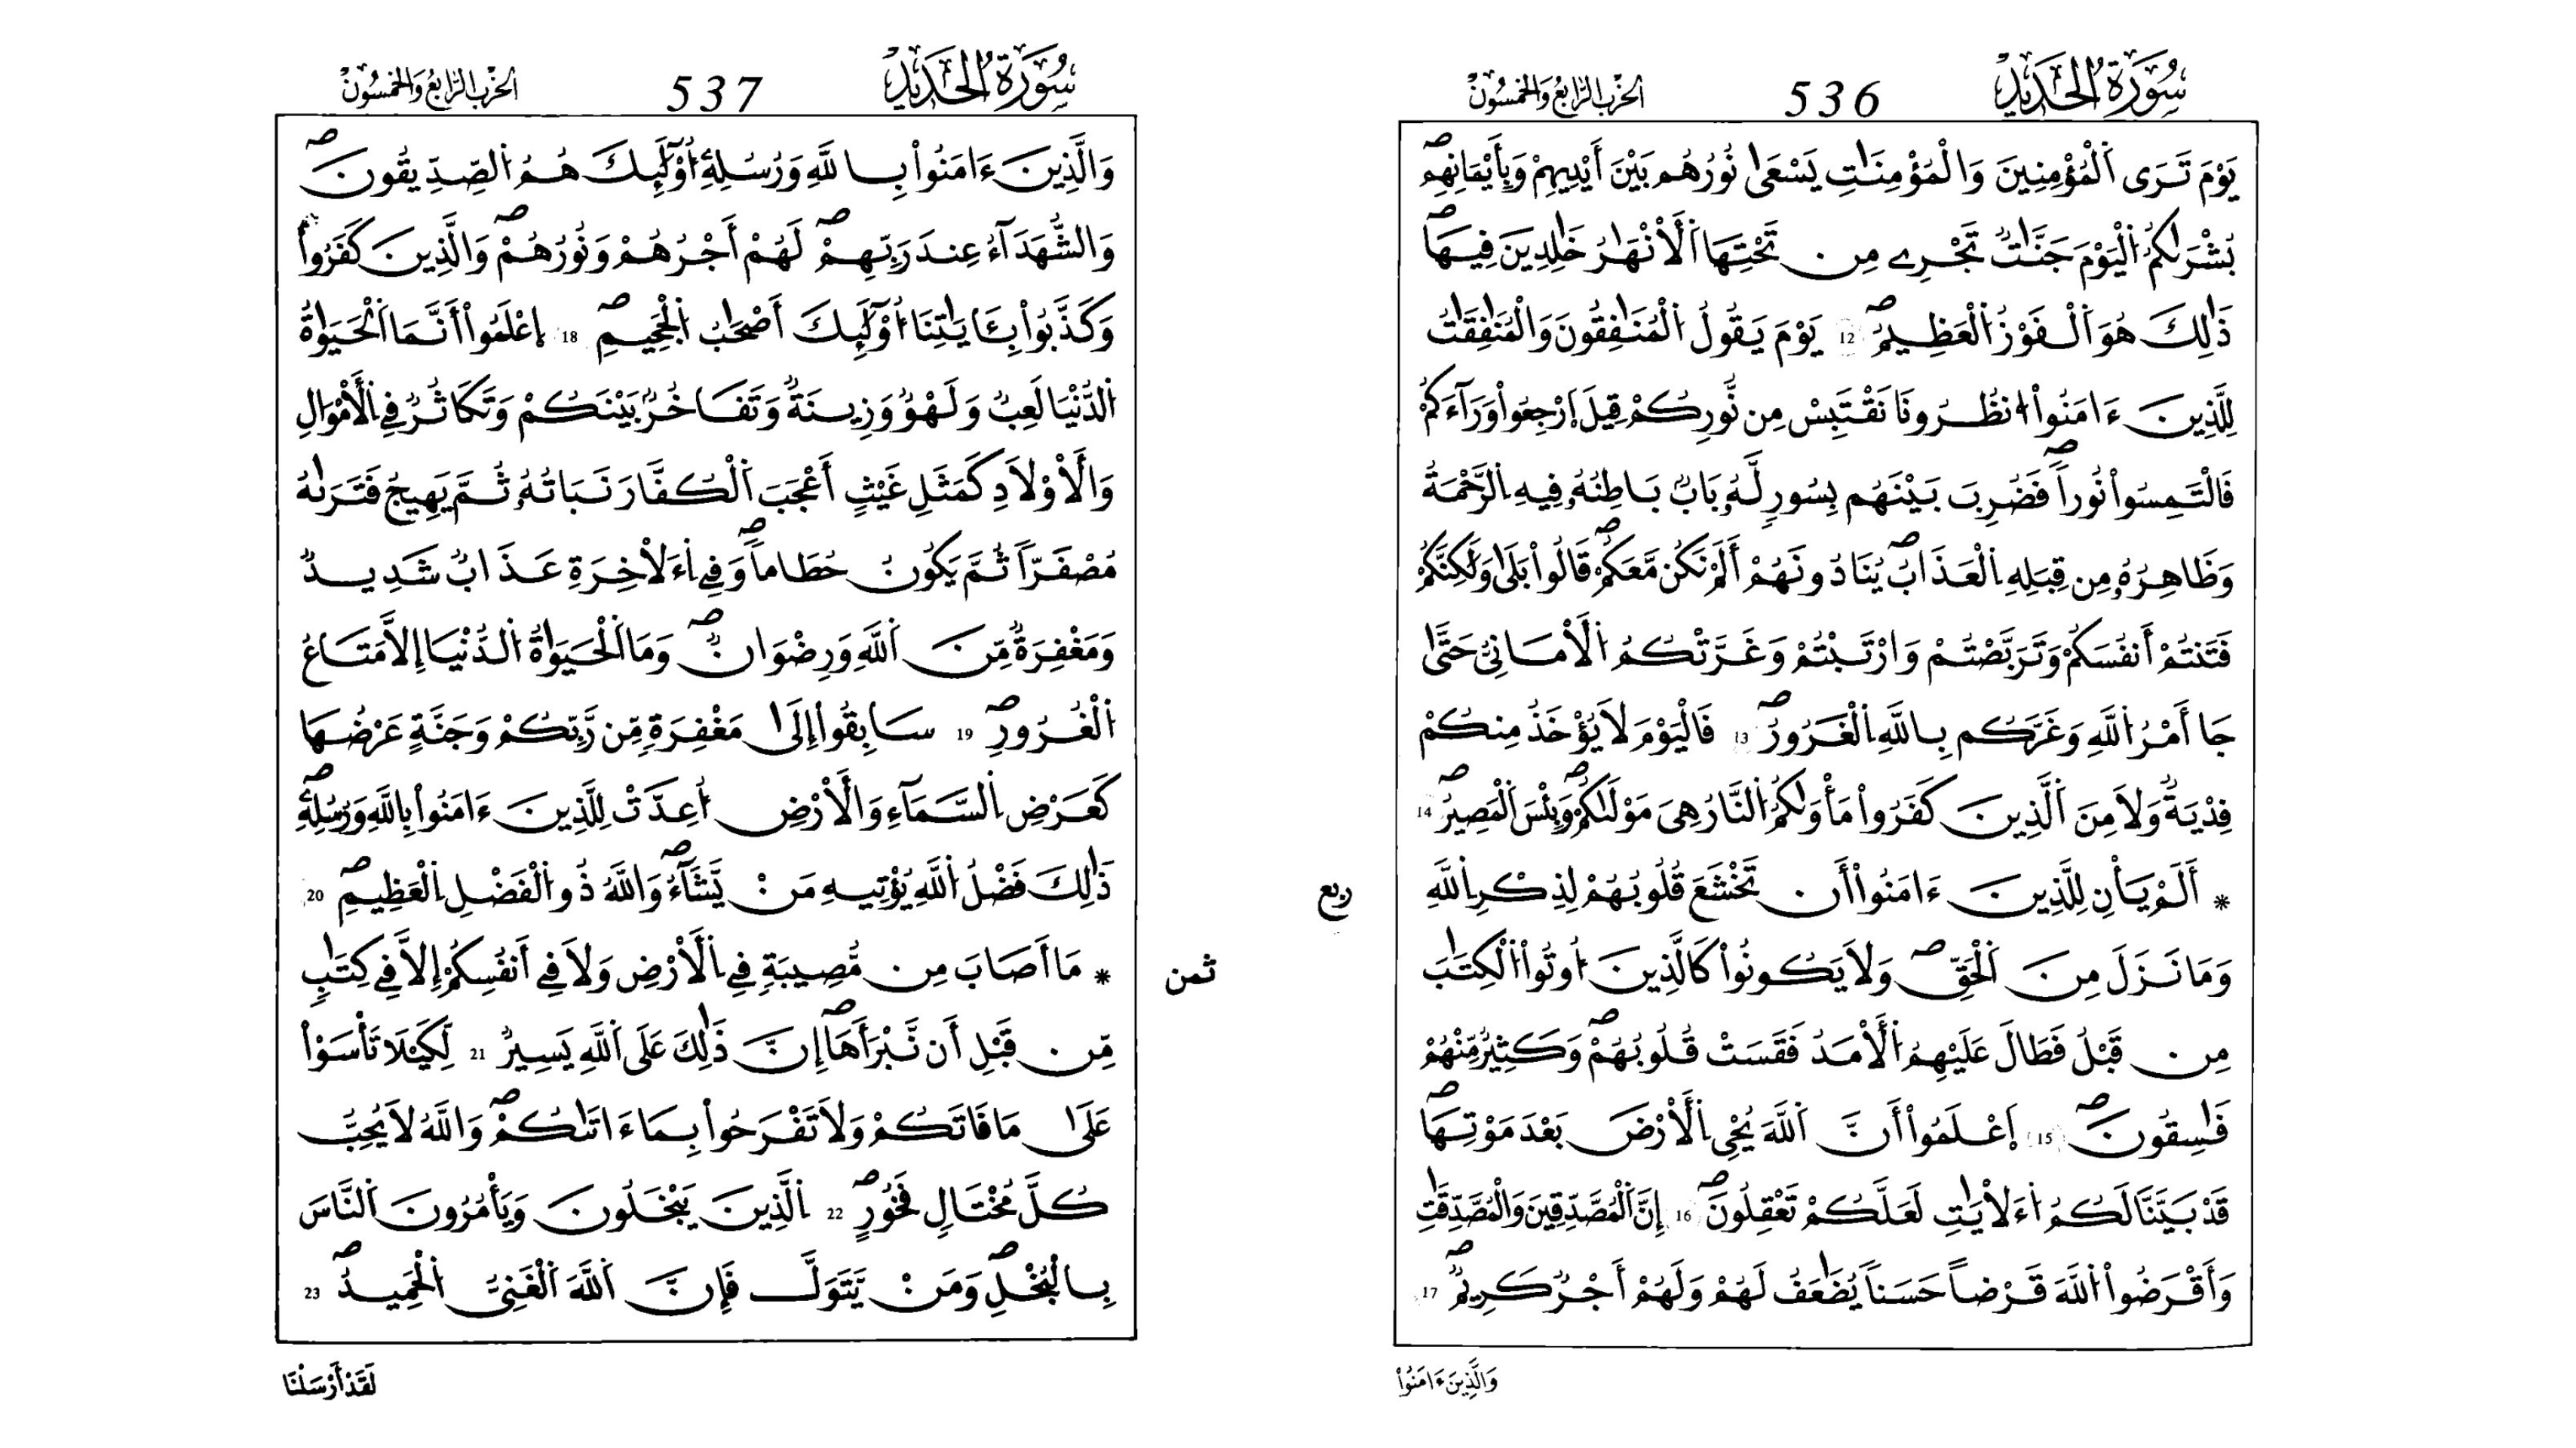 سُورَةُ الحَدِيدِ 536 الحزب الرابع والخمسون
يَوْمَ تَرَى اَلْمُؤْمِنِينَ وَالْمُؤْمِنَٰتِ يَسْعَىٰ نُورُهُم بَيْنَ أَيْدِيهِمْ وَبِأَيْمَٰنِهِمۖ
بُشْرَىٰكُمُ اُلْيَوْمَ جَنَّٰتٞ تَجْرِے مِن تَحْتِهَا اَلَأَنْهَٰرُ خَٰلِدِينَ فِيهَاۖ
ذَٰلِكَ هُوَ اَلْفَوْزُ اُلْعَظِيمُۖ 12 يَوْمَ يَقُولُ اُلْمُنَٰفِقُونَ وَالْمُنَٰفِقَٰتُ
لِلَّذِينَ ءَامَنُواْ اُنظُرُونَا نَقْتَبِسْ مِن نُّورِكُمْ قِيلَ اَرْجِعُواْ وَرَآءَكُمْ
فَالْتَمِسُواْ نُوراٗۖ فَضُرِبَ بَيْنَهُم بِسُورٖ لَّهُۥ بَابُۢ بَاطِنُهُۥ فِيهِ اِلرَّحْمَةُ
وَظَٰهِرُهُۥ مِن قِبَلِهِ اِلْعَذَابُۖ يُنَادُونَهُمْ أَلَمْ نَكُن مَّعَكُمْۖ قَالُواْ بَلَىٰ وَلَٰكِنَّكُمْ
فَتَنتُمْ أَنفُسَكُمْ وَتَرَبَّصْتُمْ وَارْتَبْتُمْ وَغَرَّتْكُمُ اُلَأَمَانِيُّ حَتَّىٰ
جَا أَمْرُ اُللَّهِ وَغَرَّكُم بِاللَّهِ اِلْغَرُورُۖ 13 فَالْيَوْمَ لَا يُؤْخَذُ مِنكُمْ
فِدْيَةٞ وَلَا مِنَ اَلَّذِينَ كَفَرُواْ مَأْوَىٰكُمُ اُلنَّارُ هِيَ مَوْلَىٰكُمْۖ وَبِئْسَ اَلْمَصِيرُۖ 14
* أَلَمْ يَأْنِ لِلَّذِينَ ءَامَنُواْ أَن تَخْشَعَ قُلُوبُهُمْ لِذِكْرِ اِللَّهِ
ربع
وَمَا نَزَلَ مِنَ اَلْحَقِّۖ وَلَا يَكُونُواْ كَالَّذِينَ أُوتُواْ اُلْكِتَٰبَ
مِن قَبْلُ فَطَالَ عَلَيْهِمُ اُلَأَمَدُ فَقَسَتْ قُلُوبُهُمْۖ وَكَثِيرٞ مِّنْهُمْ
فَٰسِقُونَۖ 15 اِعْلَمُواْ أَنَّ اَللَّهَ يُحْيِ اِلَأَرْضَ بَعْدَ مَوْتِهَاۖ
قَدْ بَيَّنَّا لَكُمُ اُءَلَايَٰتِ لَعَلَّكُمْ تَعْقِلُونَۖ 16 إِنَّ اَلْمُصَّدِّقِينَ وَالْمُصَّدِّقَٰتِ
وَأَقْرَضُواْ اُللَّهَ قَرْضاً حَسَناٗ يُضَٰعَفُ لَهُمْ وَلَهُمْ أَجْرٞ كَرِيمٞۖ 17
وَالَّذِينَ ءَامَنُواْ
سُورَةُ الحَدِيدِ 537 الحزب الرابع والخمسون
وَالَّذِينَ ءَامَنُواْ بِاللَّهِ وَرُسُلِهِۦٓ أُوْلَٰٓئِكَ هُمُ اُلصِّدِّيقُونَۖ
وَالشُّهَدَآءُ عِندَ رَبِّهِمْۖ لَهُمْ أَجْرُهُمْ وَنُورُهُمْۖ وَالَّذِينَ كَفَرُواْ
وَكَذَّبُواْ بِـَٔايَٰتِنَا أُوْلَٰٓئِكَ أَصْحَٰبُ اُلْجَحِيمِۖ 18 اِعْلَمُواْ أَنَّمَا اَلْحَيَوٰةُ
اُلدُّنْيَا لَعِبٞ وَلَهْوٞ وَزِينَةٞ وَتَفَاخُرُۢ بَيْنَكُمْ وَتَكَاثُرٞ فِے اِلَأَمْوَالِ
وَالَأَوْلَادِ كَمَثَلِ غَيْثٍ أَعْجَبَ اَلْكُفَّارَ نَبَاتُهُۥ ثُمَّ يَهِيجُ فَتَرَىٰهُ
مُصْفَرّاٗ ثُمَّ يَكُونُ حُطَٰماٗۖ وَفِے اِءَلَاخِرَةِ عَذَابٞ شَدِيدٞ
وَمَغْفِرَةٞ مِّنَ اَللَّهِ وَرِضْوَٰنٞۖ وَمَا اَلْحَيَوٰةُ اُلدُّنْيَا إِلَّا مَتَٰعُ
اُلْغُرُورِۖ 19 سَابِقُواْ إِلَىٰ مَغْفِرَةٖ مِّن رَّبِّكُمْ وَجَنَّةٍ عَرْضُهَا
كَعَرْضِ اِلسَّمَآءِ وَالَأَرْضِ أُعِدَّتْ لِلَّذِينَ ءَامَنُواْ بِاللَّهِ وَرُسُلِهِۦۖ
ذَٰلِكَ فَضْلُ اُللَّهِ يُؤْتِيهِ مَنْ يَّشَآءُۖ وَاللَّهُ ذُو اُلْفَضْلِ اِلْعَظِيمِۖ 20
ثمن
* مَا أَصَابَ مِن مُّصِيبَةٖ فِے اِلَأَرْضِ وَلَا فِے أَنفُسِكُمْ إِلَّا فِے كِتَٰبٖ
مِّن قَبْلِ أَن نَّبْرَأَهَاۖ إِنَّ ذَٰلِكَ عَلَى اَللَّهِ يَسِيرٞ 21 لِّكَيْلَا تَأْسَوْاْ
عَلَىٰ مَا فَاتَكُمْ وَلَا تَفْرَحُواْ بِمَا ءَاتَىٰكُمْۖ وَاللَّهُ لَا يُحِبُّ
كُلَّ مُخْتَالٖ فَخُورٍۖ 22 اِلَّذِينَ يَبْخَلُونَ وَيَأْمُرُونَ اَلنَّاسَ
بِالْبُخْلِۖ وَمَنْ يَّتَوَلَّ فَإِنَّ اَللَّهَ اَلْغَنِيُّ اُلْحَمِيدُۖ 23
لَقَدْ أَرْسَلْنَا